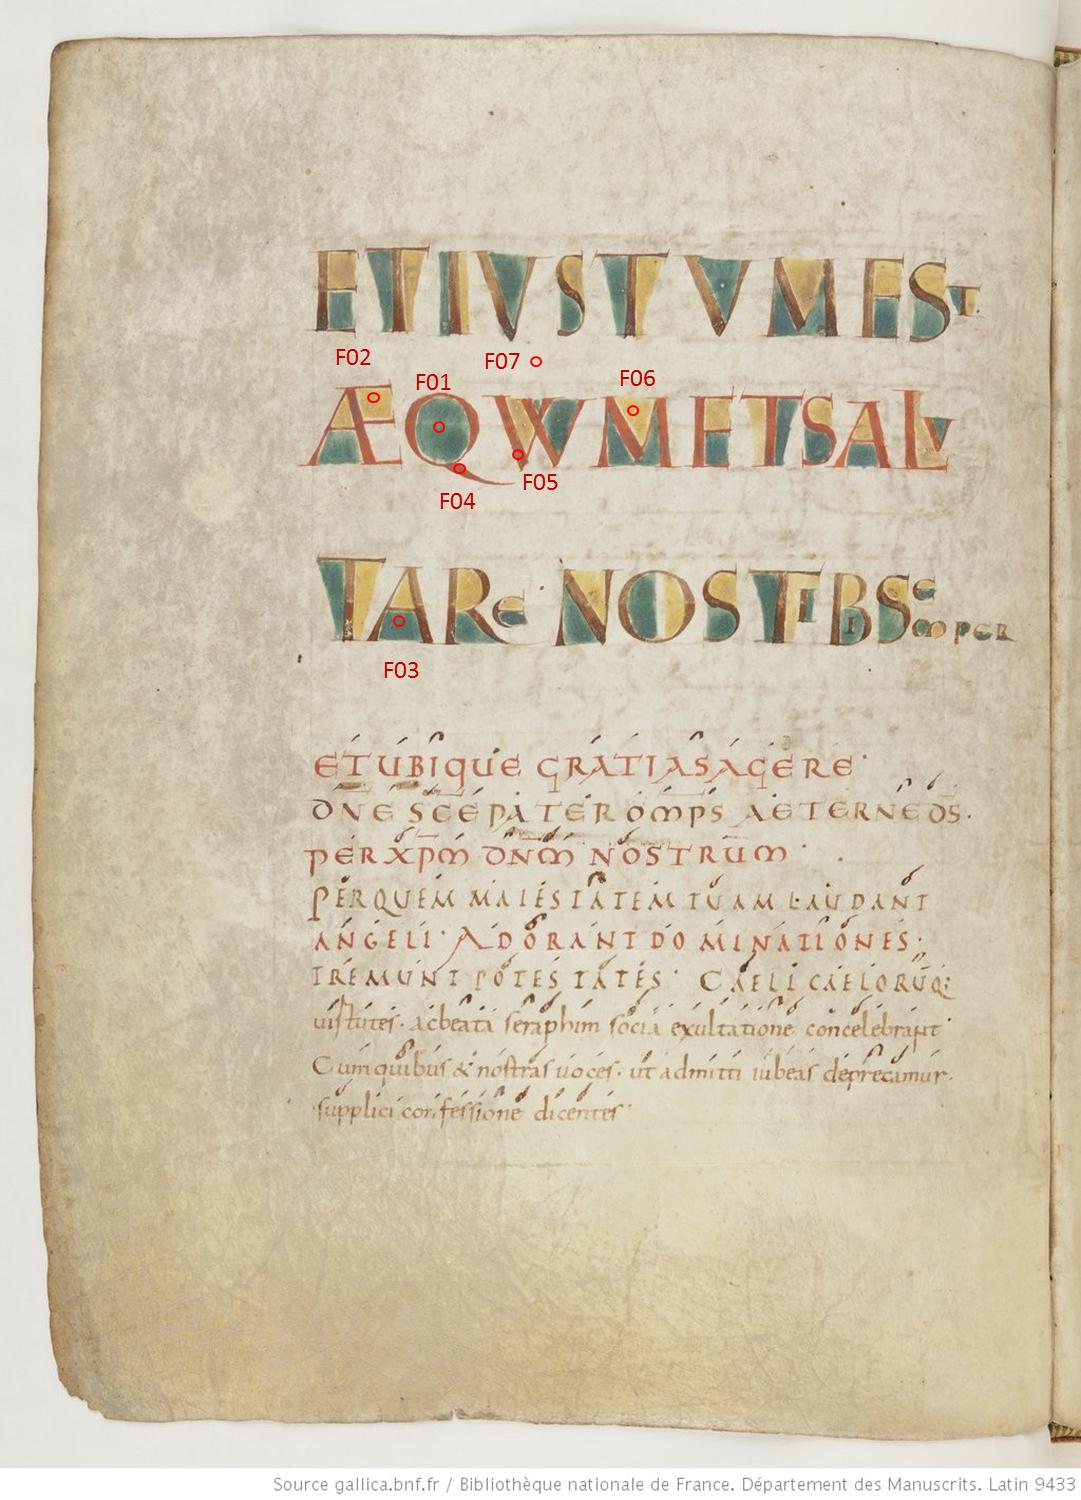 ETIUSTVMEST
F02
F07
F01
F06
ÆQVVMETSALV
F05
F04
TARE NOSTIBISE
MPER
F03
ETUBIQUE GRATIASAGERE
DN̄E SC̄E PATER OMP̄S AETERNE DS̄.
PER XP̄M DN̄M NOSTRUM
PERQUEM MAIESTATEM TUAM LAUDANT
ANGELI· ADORANT DOMINATIONES·
TREMUNT POTESTATES· CAELI CAELORŪQ;
uirtutes· acbeata seraphim socia exultatione concelebrant
Cumquibus & nostras uoces· ut admitti iubeas deprecamur.
supplici confessione dicentes·
Source gallica.bnf.fr / Bibliothèque nationale de France. Département des Manuscrits. Latin 9433